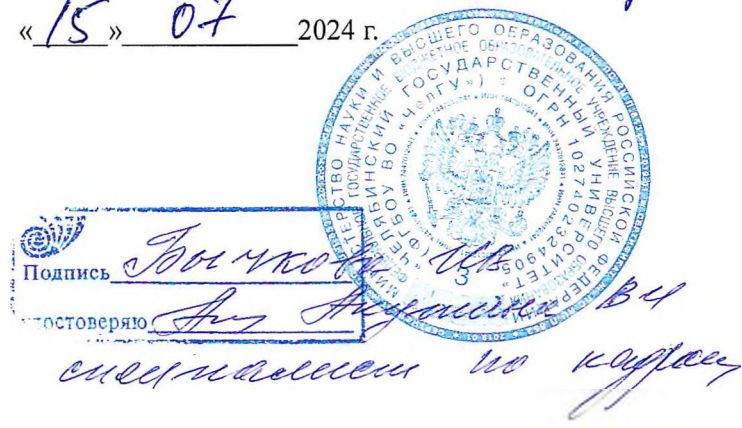 «15» 07 2024 г.
МИНИСТЕРСТВО НАУКИ И ВЫСШЕГО ОБРАЗОВАНИЯ РОССИЙСКОЙ ФЕДЕРАЦИИ
ФЕДЕРАЛЬНОЕ ГОСУДАРСТВЕННОЕ БЮДЖЕТНОЕ ОБРАЗОВАТЕЛЬНОЕ УЧРЕЖДЕНИЕ ВЫСШЕГО ОБРАЗОВАНИЯ
«ЧЕЛЯБИНСКИЙ ГОСУДАРСТВЕННЫЙ УНИВЕРСИТЕТ»
(ФГБОУ ВО «ЧелГУ») * ОГРН 1027402324905
3
Подпись Бычкова ИВ
удостоверяю ВИ
специалист по кадрам